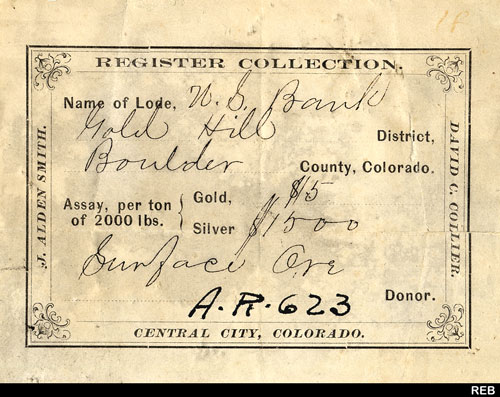 18
REGISTER COLLECTION.
Name of Lode, U. S. Bank
Gold Hill District,
Boulder County, Colorado.
Assay, per ton of 2000 lbs. { Gold, $15
Silver $1500
Surface Ore
A.R.623 Donor.
CENTRAL CITY, COLORADO.
J. ALDEN SMITH.
DAVID C. COLLIER.
REB